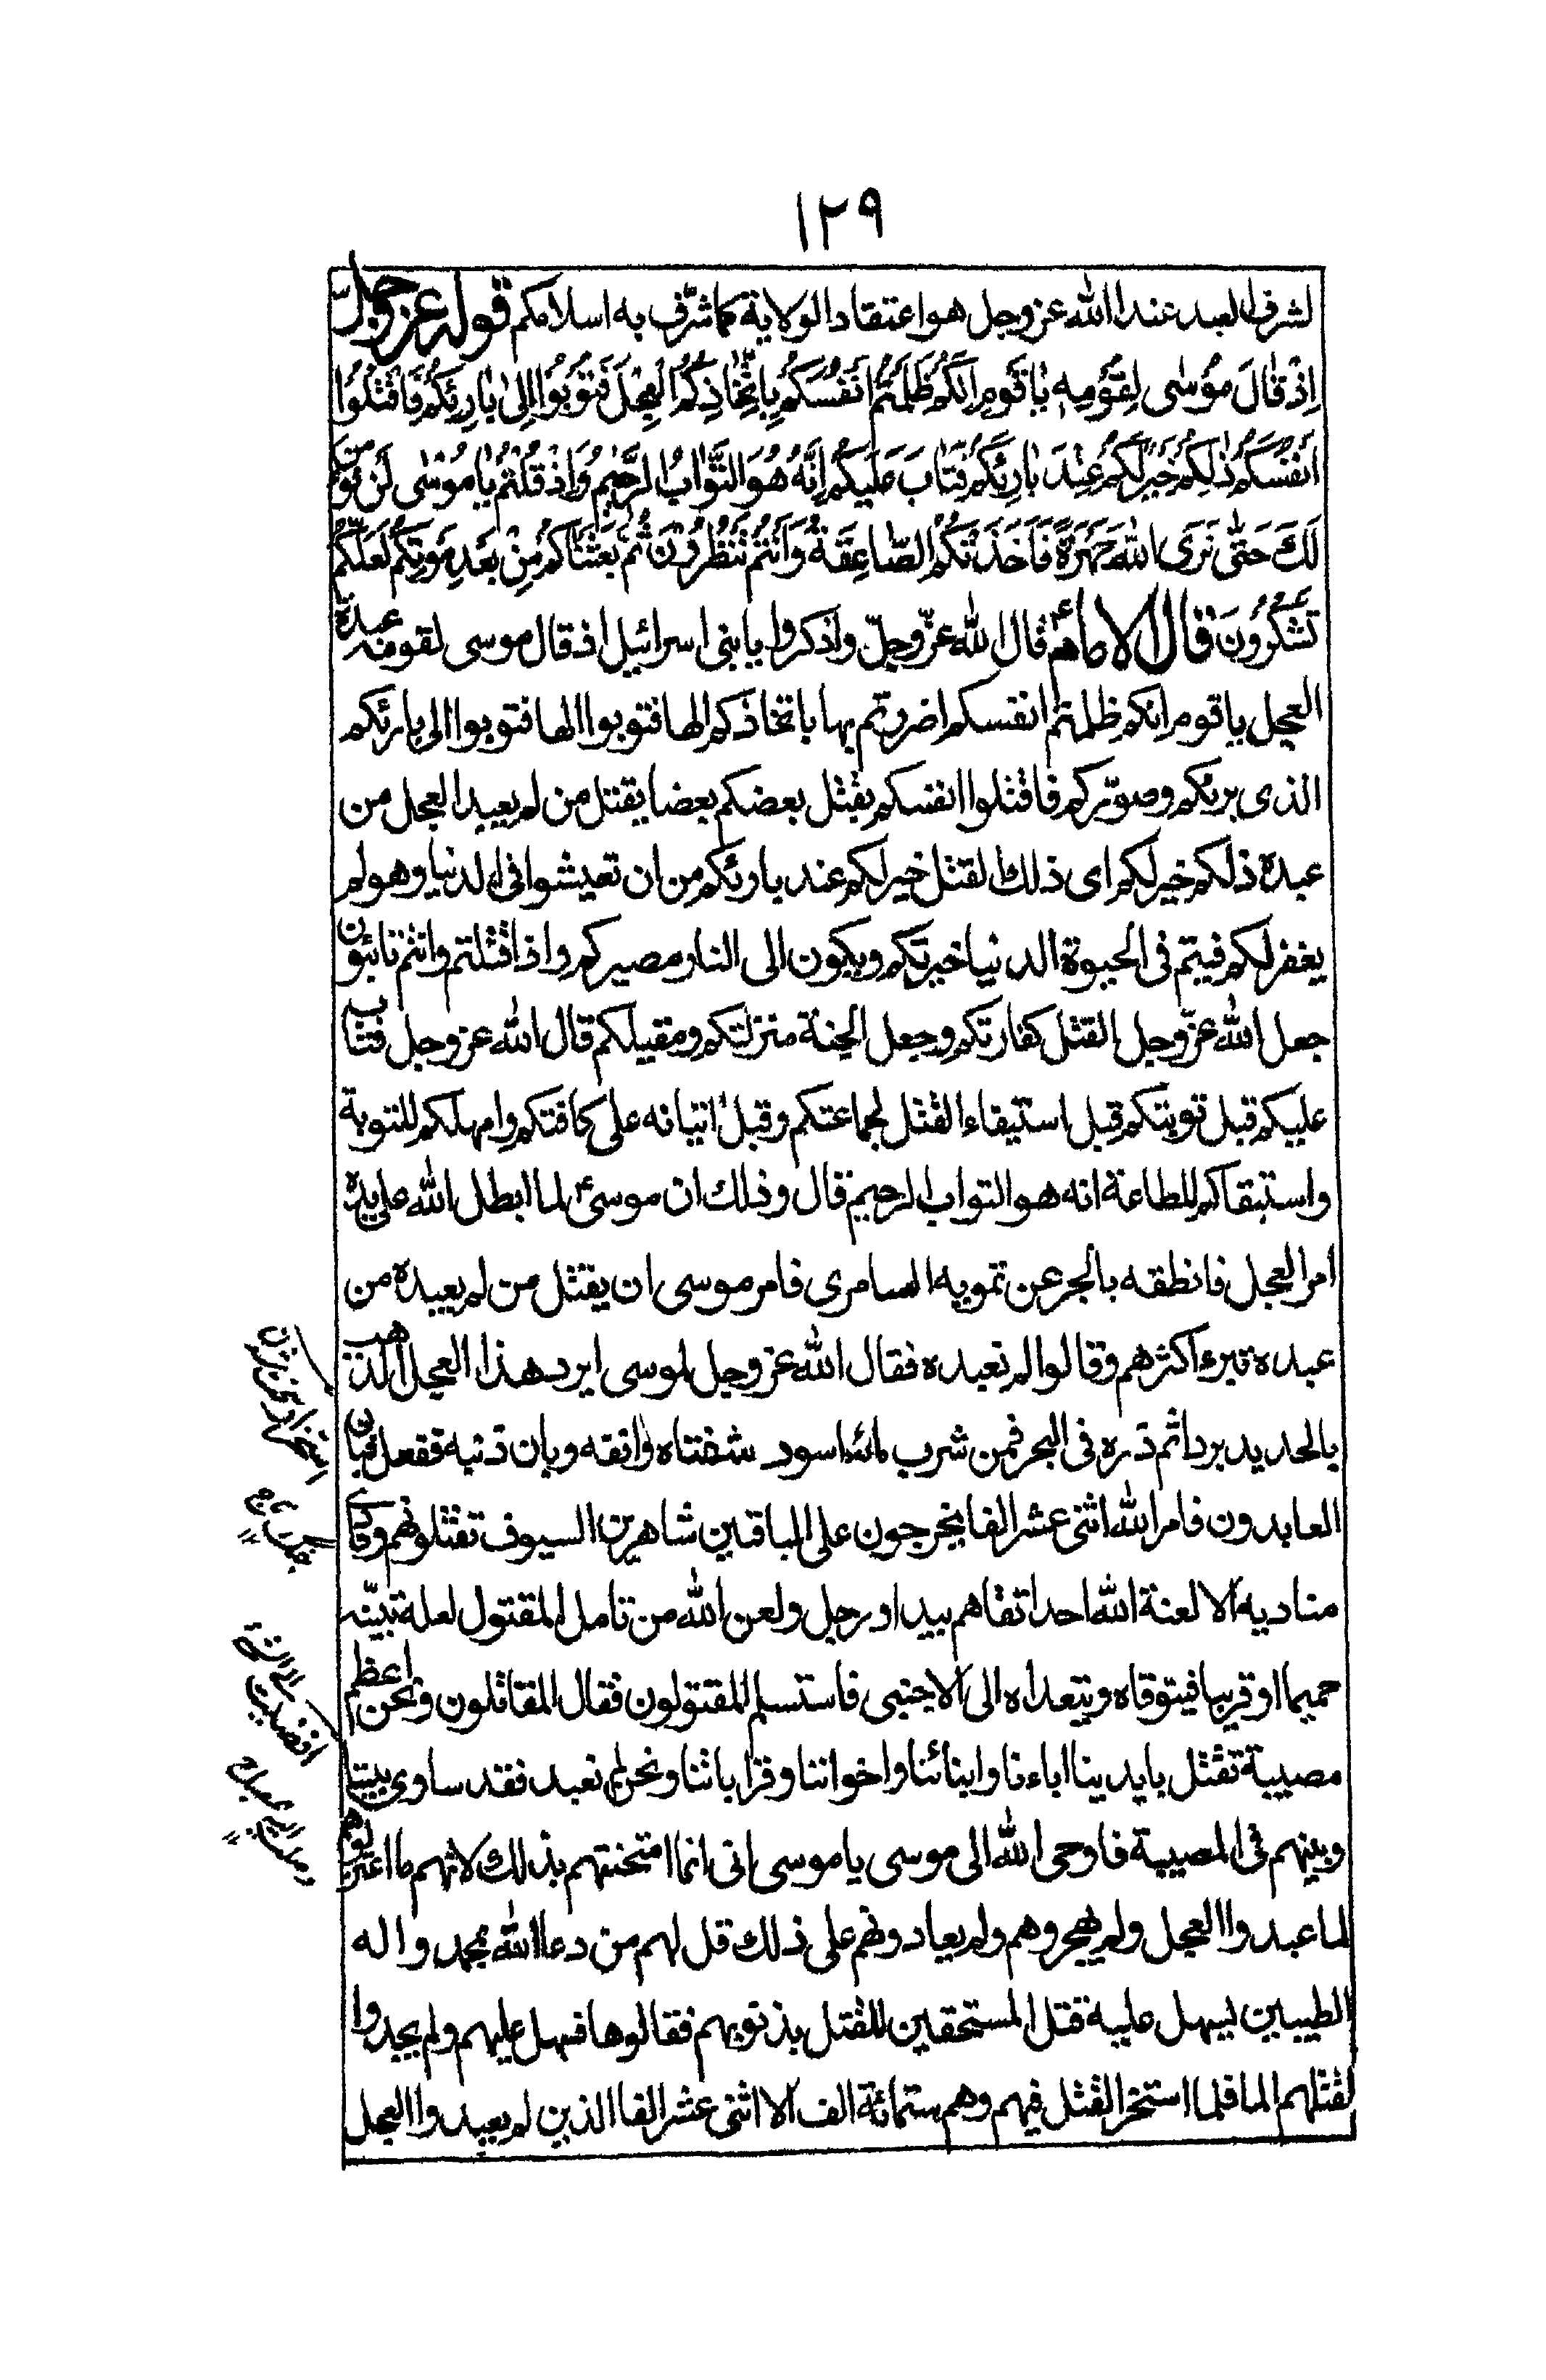 ١٢٩
لشرف العبد عند الله عز وجل هو اعتقاد الولاية كما شرّف به اسلامكم قوله عز وجل
اِذْ قٰالَ مُوسٰى لِقَوْمِهِ يٰا قَوْمِ اِنَّكُمْ ظَلَمْتُمْ اَنْفُسَكُمْ بِاتِّخٰاذِكُمُ الْعِجْلَ فَتُوبُوا اِلىٰ بٰارِئِكُمْ فَاقْتُلُوا
اَنْفُسَكُمْ ذٰلِكُمْ خَيْرٌ لَكُمْ عِنْدَ بٰارِئِكُمْ فَتٰابَ عَلَيْكُمْ اِنَّهُ هُوَ التَّوّٰابُ الرَّحِيمُ وَاِذْ قُلْتُمْ يٰا مُوسٰى لَنْ نُؤْمِنَ
لَكَ حَتّٰى نَرَى اللهَ جَهْرَةً فَاَخَذَتْكُمُ الصّٰاعِقَةُ وَاَنْتُمْ تَنْظُرُونَ ثُمَّ بَعَثْنٰاكُمْ مِنْ بَعْدِ مَوْتِكُمْ لَعَلَّكُمْ
تَشْكُرُونَ قال الامام ع قال الله عزّ وجلّ واذكروا يا بنى اسرائيل اذ قال موسى لقومه عبدة
العجل يا قوم انكم ظلمتم انفسكم اضررتم بها باتخاذكم الها فتوبوا الها فتوبوا الى بارئكم
الذى برئكم وصوّركم فاقتلوا انفسكم يقتل بعضكم بعضا يقتل من لم يعبد العجل من
عبده ذلكم خير لكم اى ذلك القتل خير لكم عند بارئكم من ان تعيشوا فى الدنيا وهو لم
يغفر لكم فيتم فى الحيوة الدنيا خيرتكم ويكون الى النار مصيركم واذا قتلتم وانتم تائبون
جعل الله عزّ وجل القتل كفارتكم وجعل الجنة منزلتكم ومقيلكم قال الله عز وجل فتاب
عليكم قبل توبتكم قبل استيفاء القتل لجماعتكم وقبل اتيانه على كافتكم وامهلكم للتوبة
واستبقاكم للطاعة انه هو التواب الرحيم قال وذلك ان موسى ع لما ابطل الله على يده
امر العجل فانطقه بالجر عن تمويه السامرى فامر موسى ان يقتل من لم يعبده من
عبده تبرء اكثرهم وقالوا لم نعبده فقال الله عز وجل لموسى ابرد هذا العجل الذهب
بالحديد بردا ثم ذره فى البحر فمن شرب مائه اسود شفتاه وانفه وبان ذنبه ففعل فبان
العابدون فامر الله اثنى عشر الفا يخرجون على الباقين شاهرين السيوف تقتلونهم ونادى
مناديه الا لعنة الله احدا تقاهم بيد او رجل ولعن الله من تامل المقتول لعله تبيّنه
حميما او قريبا فيتوقاه ويتعداه الى الاجنبى فاستسلم المقتولون فقال المقاتلون ونحن اعظم
مصيبة تقتل بايدينا اباءنا وابنائنا واخواننا وقراباتنا ونحن لم نعبد فقد ساوى بيننا
وبينهم فى المصيبة فاوحى الله الى موسى يا موسى انى انما امتحنتهم بذلك لانهم ما اعتزلوهم
لما عبدوا العجل ولم يهجروهم ولم يعادونهم على ذلك قل لهم من دعا الله بمحمد واله
الطيبين ليسهل عليه قتل المستحقين للقتل بذنوبهم فقالوها فسهل عليهم ولم يجدوا
لقتلهم الما فلما استحر القتل فيهم وهم ستمائة الف الا اثنى عشر الفا الذين لم يعبدوا العجل